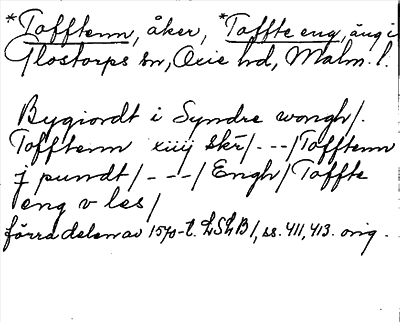 *Tofftenn, åker, *Toffte eng, äng i
Glostorps sn, Oxie hd, Malm. l.
Bygiordt i Syndre wongh/.
Tofftenn xiiij skr/ - - -/Tofftenn
j pundt/ - - -/Engh/Toffte
eng v les/
förra delen av 1570-t. LSLB/, ss. 411, 413. orig.